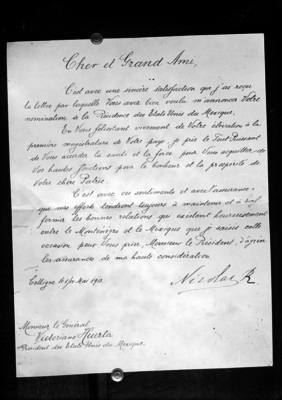 Cher et Grand Ami,
C'est avec une sincère satisfaction que j'ai reçu
la lettre par laquelle Vous avez bien voulu m'annoncer Votre
nomination à la Présidence des Etats Unis du Mexique.
En Vous félicitant vivement de Votre élévation à la
première magistrature de Votre pays, je prie le Tout Puissant
de Vous accorder la santé et la force pour Vous acquitter de
Vos hautes fonctions pour le bonheur et la prospérité de
Votre chère Patrie.
C'est avec ces sentiments et avec l'assurance
que mes efforts tendront toujours à maintenir et à
fermir les bonnes relations qui existent heureusement
entre le Monténégro et le Mexique que je saisis cette
occasion pour Vous prier, Monsieur le Président, d'agréer
les assurances de ma haute considération.
Cettigné, Mai
Nicolas
Monsieur le Général
Victoriano Huerta
Président des Etats Unis du Mexique.